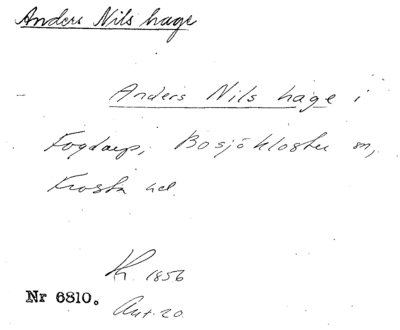 Anders Nils hage
Anders Nils hage i
Fogdarp, Bosjökloster sn,
Frosta hd.
Kr. 1856
Nr 6810.
Avt. 20.